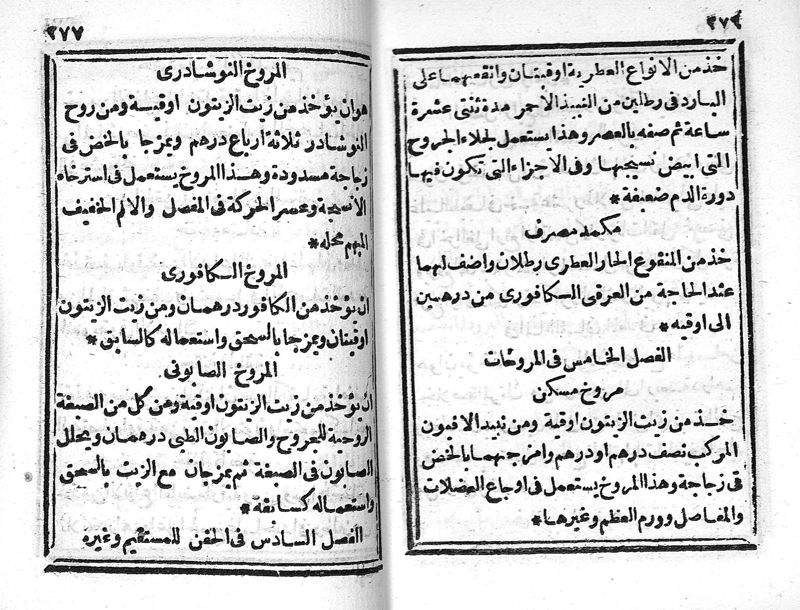 ٢٧٦
خذ من الانواع العطرية اوقيتان وانقعهما على
البارد فى رطلين من النبيذ الاحمر مدة ثنتى عشرة
ساعة ثم صفه بالعصر وهذا يستعمل لجلاء الجروح
التى ابيض نسيجها وفى الاجزاء التى تكون فيها
دورة الدم ضعيفة *
مكمد مصرف
خذ من المنقوع الحار العطرى رطلان واضف لهما
عند الحاجة من العرقى الكافورى من درهمين
الى اوقيه *
الفصل الخامس فى المروخات
مروخ مسكن
خذ من زيت الزيتون اوقية ومن نبيذ الافيون
المركب نصف درهم او درهم وامزجهما بالخض
فى زجاجة وهذا المروخ يستعمل فى اوجاع العضلات
والمفاصل وورم العظم وغيرها *
٢٧٧
المروخ النوشادرى
هو ان يؤخذ من زيت الزيتون اوقية ومن روح
النوشادر ثلاثة ارباع درهم ويمزجا بالخض فى
زجاجة مسدودة وهذا المروخ يستعمل فى استرخاء
الانسجة وعسر الحركة فى المفصل والالم الخفيف
المبهم محله *
المروخ الكافورى
ان يؤخذ من الكافور درهمان ومن زيت الزيتون
اوقيتان ويمزجا بالسحق واستعماله كالسابق *
المروخ الصابونى
ان يؤخذ من زيت الزيتون اوقية ومن كل من الصبغة
الروحية للبيروح والصابون الطبى درهمان ويحلل
الصابون فى الصبغة ثم يمزجان مع الزيت بالسحق
واستعماله كسابقه *
الفصل السادس فى الحقن للمستقيم وغيره